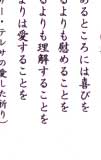 あるところには喜びを
るよりも慰めることを
るよりも理解することを
よりは愛することを
ー・テレサの愛した祈り)